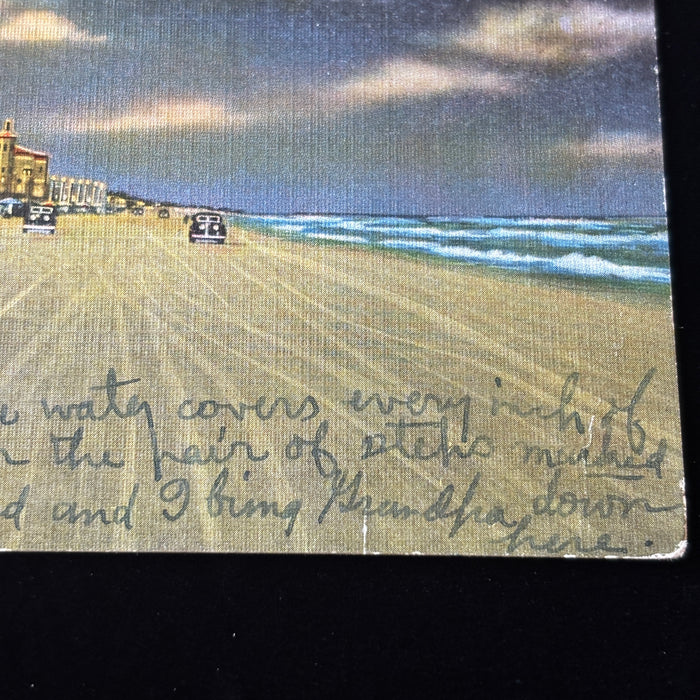 water covers every inch of
the pair of steps marked
and I bring Grandpa down
here.